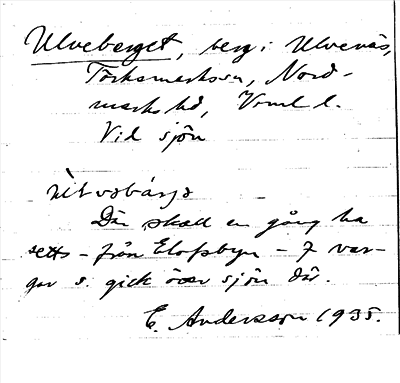 Ulveberget, berg i Ulvenäs,
Töcksmarks sn, Nord-
marks hd, Vrml l.
Vid sjön
Där skall en gång ha
setts - från Elofsbyn - 7 var-
gar s. gick över sjön där.
E. Andersson 1935.